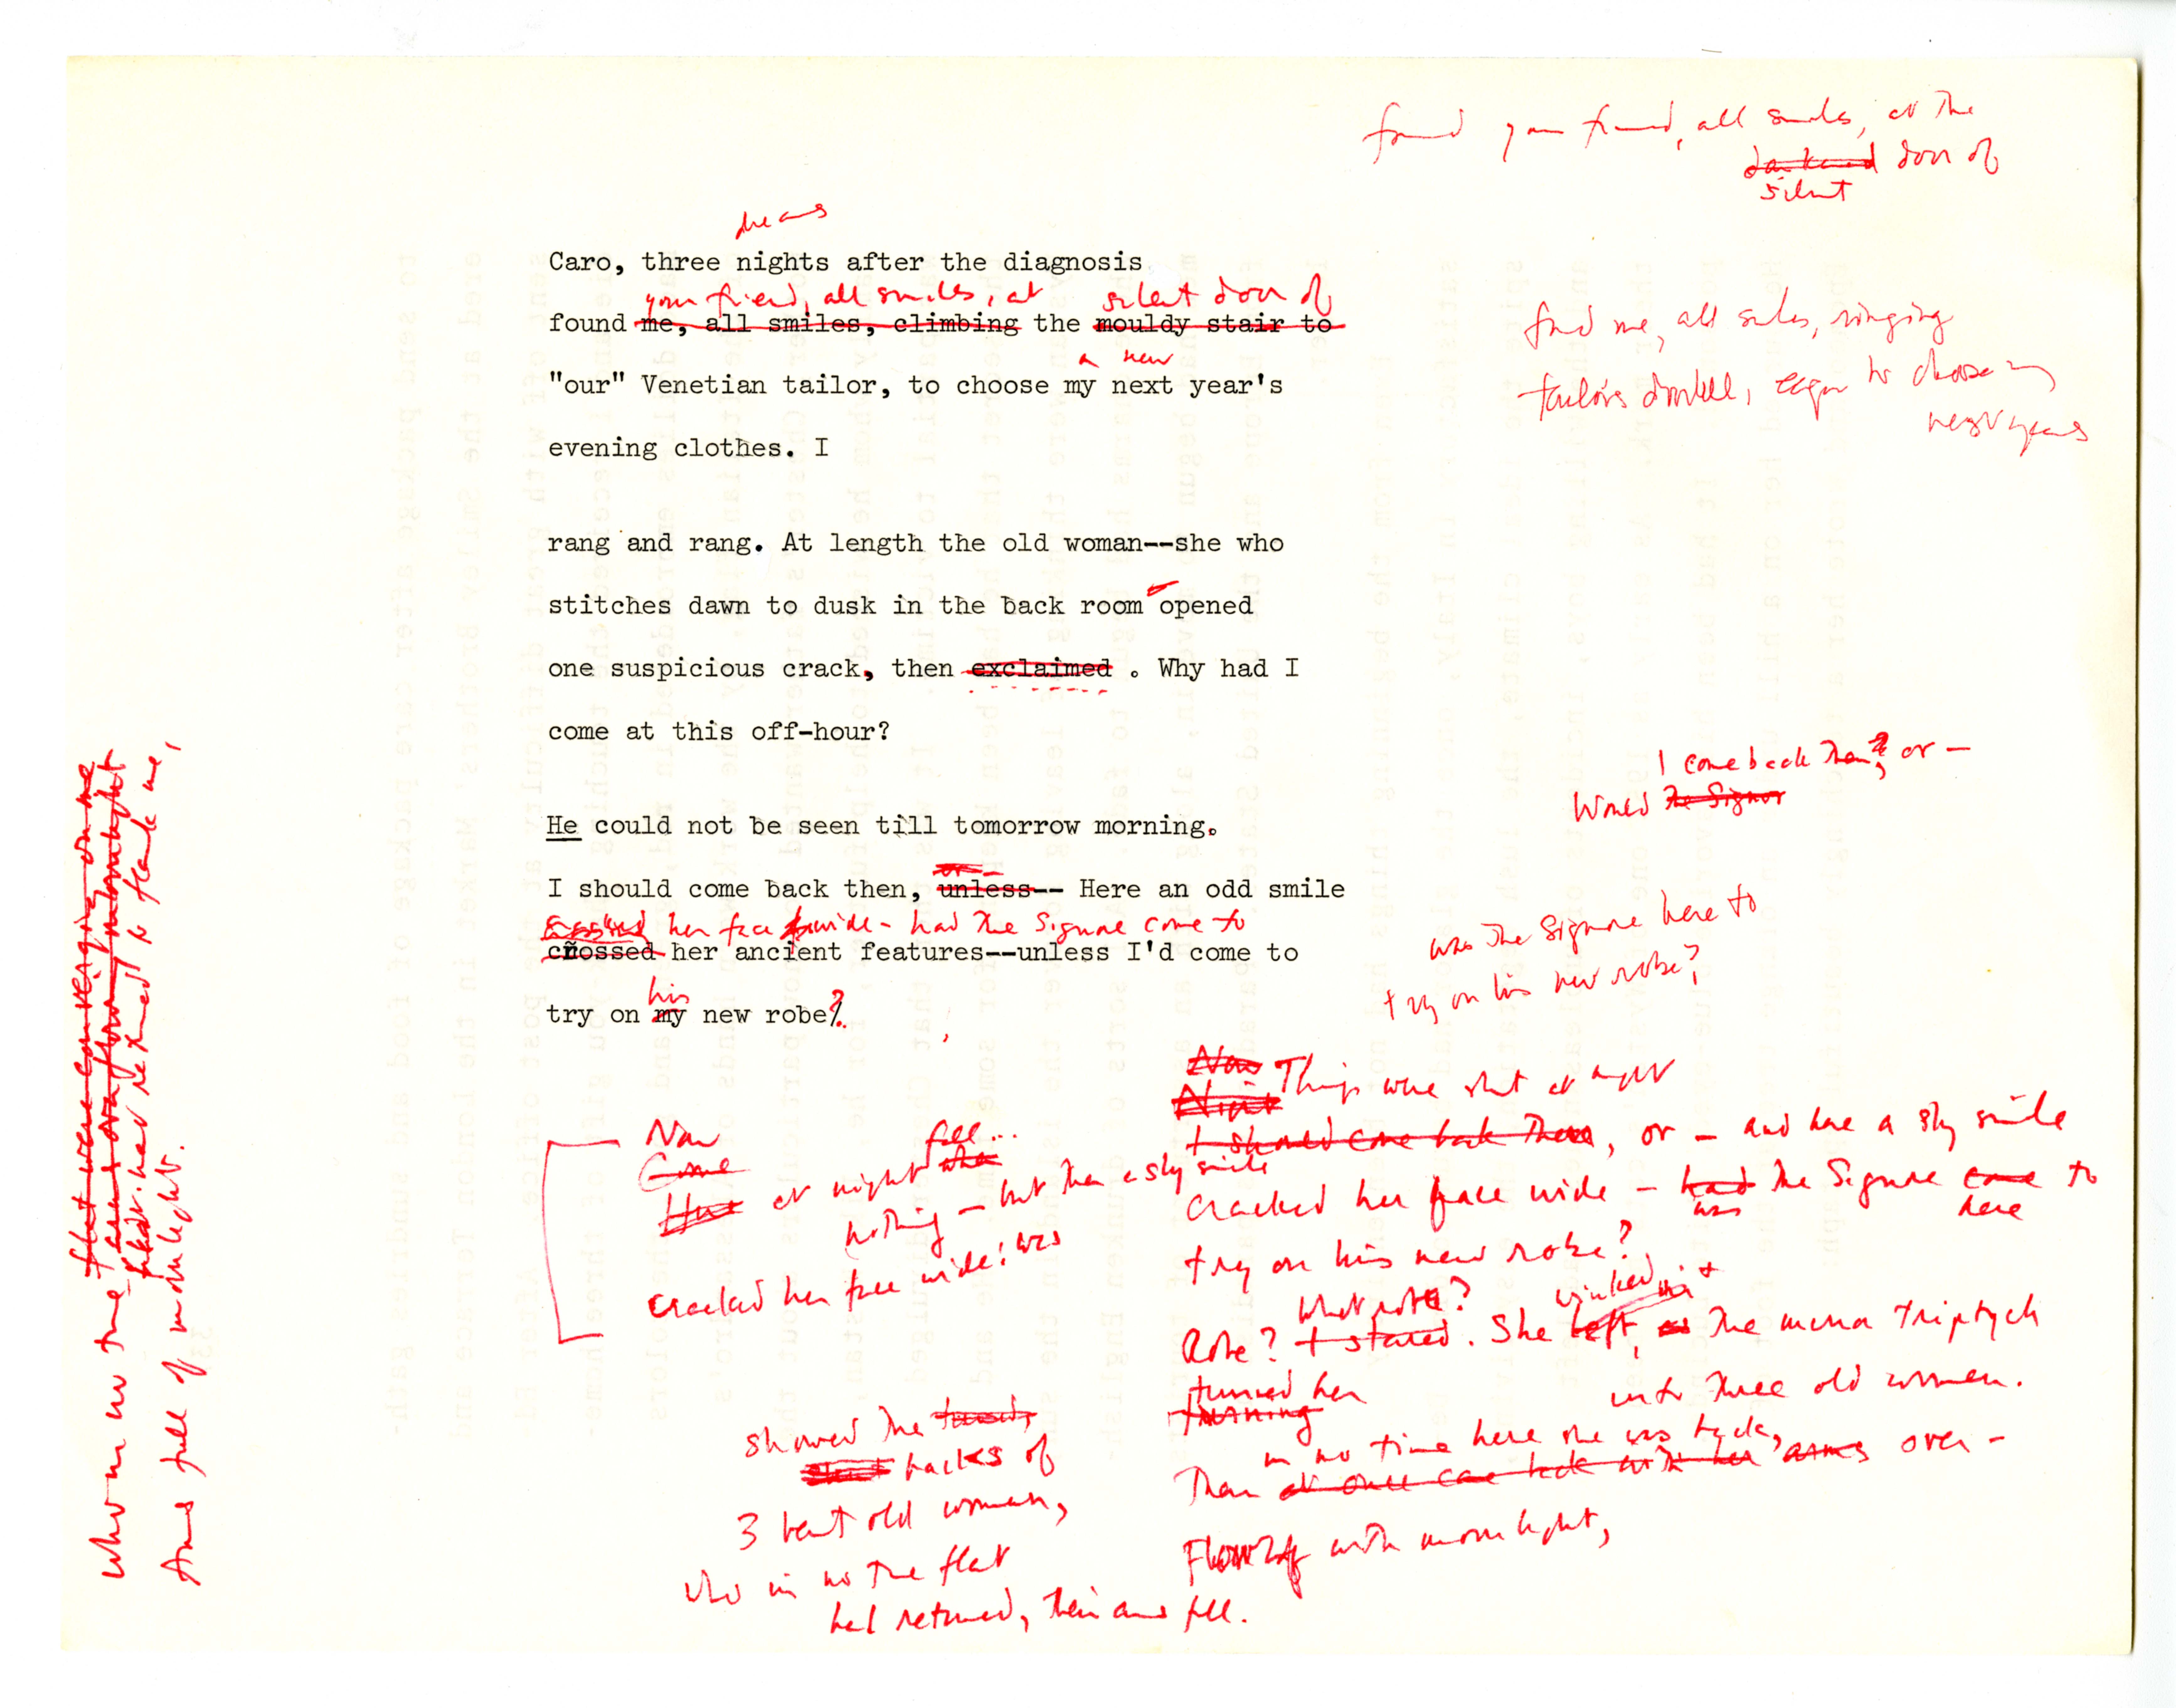 found your friend, all smiles, at the
darkened door of
silent
dreams
Caro, three nights after the diagnosis
your friend, all smiles, at silent door of
found me, all smiles, climbing the mouldy stair to
a new
"our" Venetian tailor, to choose my next year's
evening clothes. I
find me, all smiles, ringing
tailor's doorbell, eager to choose my
next year's
rang and rang. At length the old woman--she who
stitches dawn to dusk in the back room opened
one suspicious crack, then exclaimed . Why had I
come at this off-hour?
I come back then?, or —
Would the Signor
He could not be seen till tomorrow morning.
or —
I should come back then, unless-- Here an odd smile
crossed her face wide - had the Signore come to
crossed her ancient features--unless I'd come to
his
try on my new robe?.
was the Signore here to
try on his new robe?
Now
Night Things were shut at night
I should come back then, or — and here a sly smile
cracked her face wide — had the Signore come to
was here
try on his new robe?
What robe? winked,
Robe? I stared. She left, as the mirror triptych
turned her into three old women.
turning
in no time here she was back,
Then at once came back with her arms over-
Flowing with moonlight,
Now full...
Come
at night when
nothing — but then a sly smile
cracked her face wide: was
showed the
backs of
3 bent old women,
who in no time flat
had returned, their arms full.
flat were converging on me
arms overflowing moonlight
who in no time
flat had returned to flank me,
Arms full of moonlight.